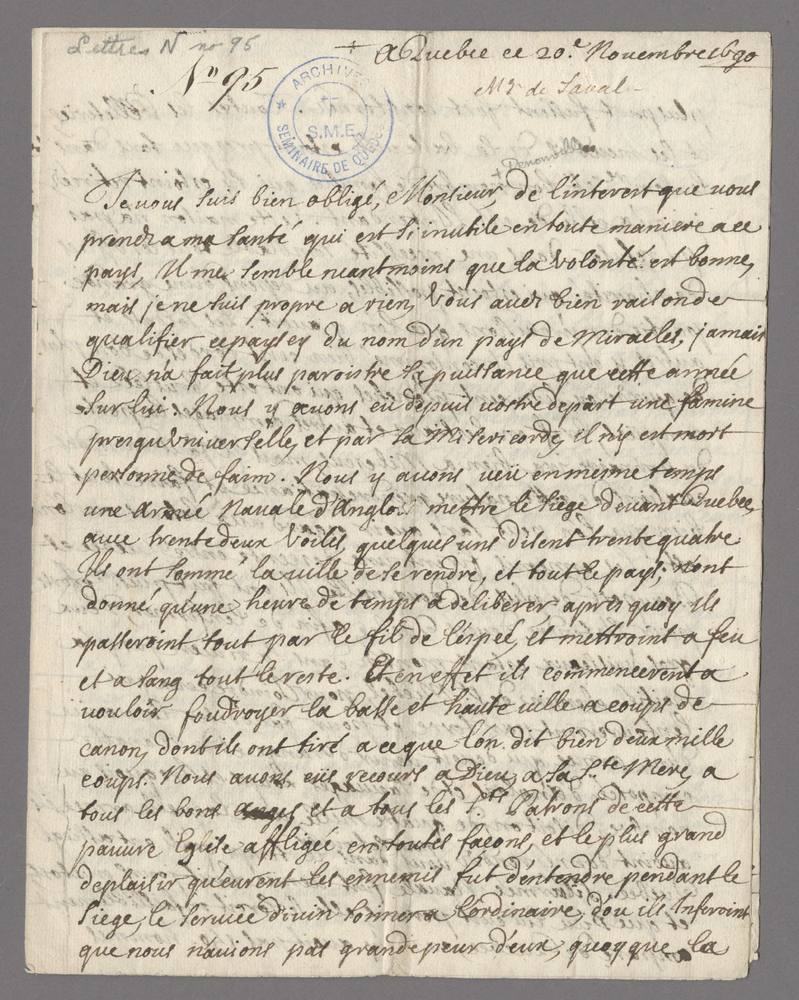 Lettres N no 95
+ A Quebec ce 20.e Novembre 1690
N° 95
ARCHIVES
S.M.E.
SÉMINAIRE DE QUÉBEC
Mgr de Laval
+ Denonville
Je vous suis bien obligé, Monsieur, de l'interest que vous
prenez a ma santé qui est si inutile en toute maniere a ce
pays, Il me semble neantmoins que la volonté est bonne,
mais je ne suis propre a rien, Vous avez bien raison de
qualifier ce pays cy du nom d'un pays de Miracles, jamais
Dieu n'a fait plus paroistre sa puissance que cette année
sur lui. Nous y avons eü depuis vostre depart une famine
presqu'Vniverselle, et par sa Misericorde, il n'y est mort
personne de faim. Nous y avons veü en mesme temps
une armée Navale d'Anglois mettre le siege devant Quebec,
avec trente deux Voiles, quelques uns disent trente quatre
Ils ont sommé la ville de se rendre, et tout le pays, n'ont
donné qu'une heure de temps a deliberer apres quoy ils
passeroint tout par le fil de l'espeé, et mettroint a feu
et a sang tout le reste. Et en effet ils commencerent a
vouloir foudroyer la basse et haute ville a coups de
canon, dont ils ont tiré a ce que l'on dit bien deux mille
coups. Nous avons eüs recours a Dieu, a sa S.te Mere, a
tous les bons anges et a tous les S.ts Patrons de cette
pauvre Eglise affligeé en toutes façons, et le plus grand
deplaisir qu'eurent les ennemis fut d'entendre pendant le
siege, le service divin sonner a l'ordinaire, d'ou ils Inferoint
que nous n'avions pas grande peur d'eux, quoy que la